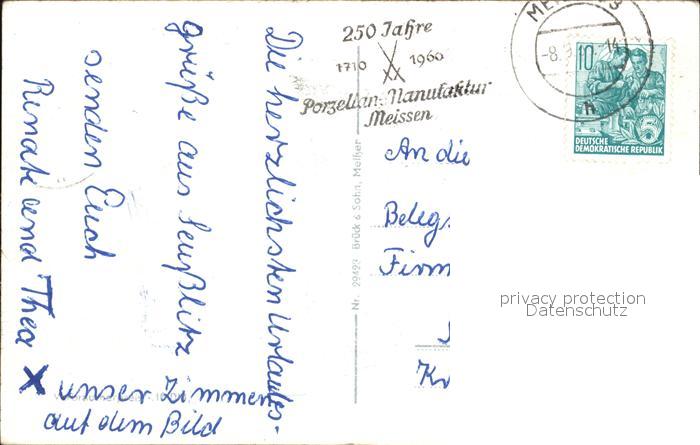 250 Jahre
1710 1960
Porzellan-Manufaktur
Meissen
MEI
-8.9
14
h
10
5
DEUTSCHE
DEMOKRATISCHE REPUBLIK
Die herzlichsten Urlaubs-
grüße aus Seußlitz
senden Euch
Renate und Thea
X unser Zimmer
auf dem Bild
Nr. 29423 Brück & Sohn, Meißen
An die
Beleg
Firm
Kr
privacy protection
Datenschutz